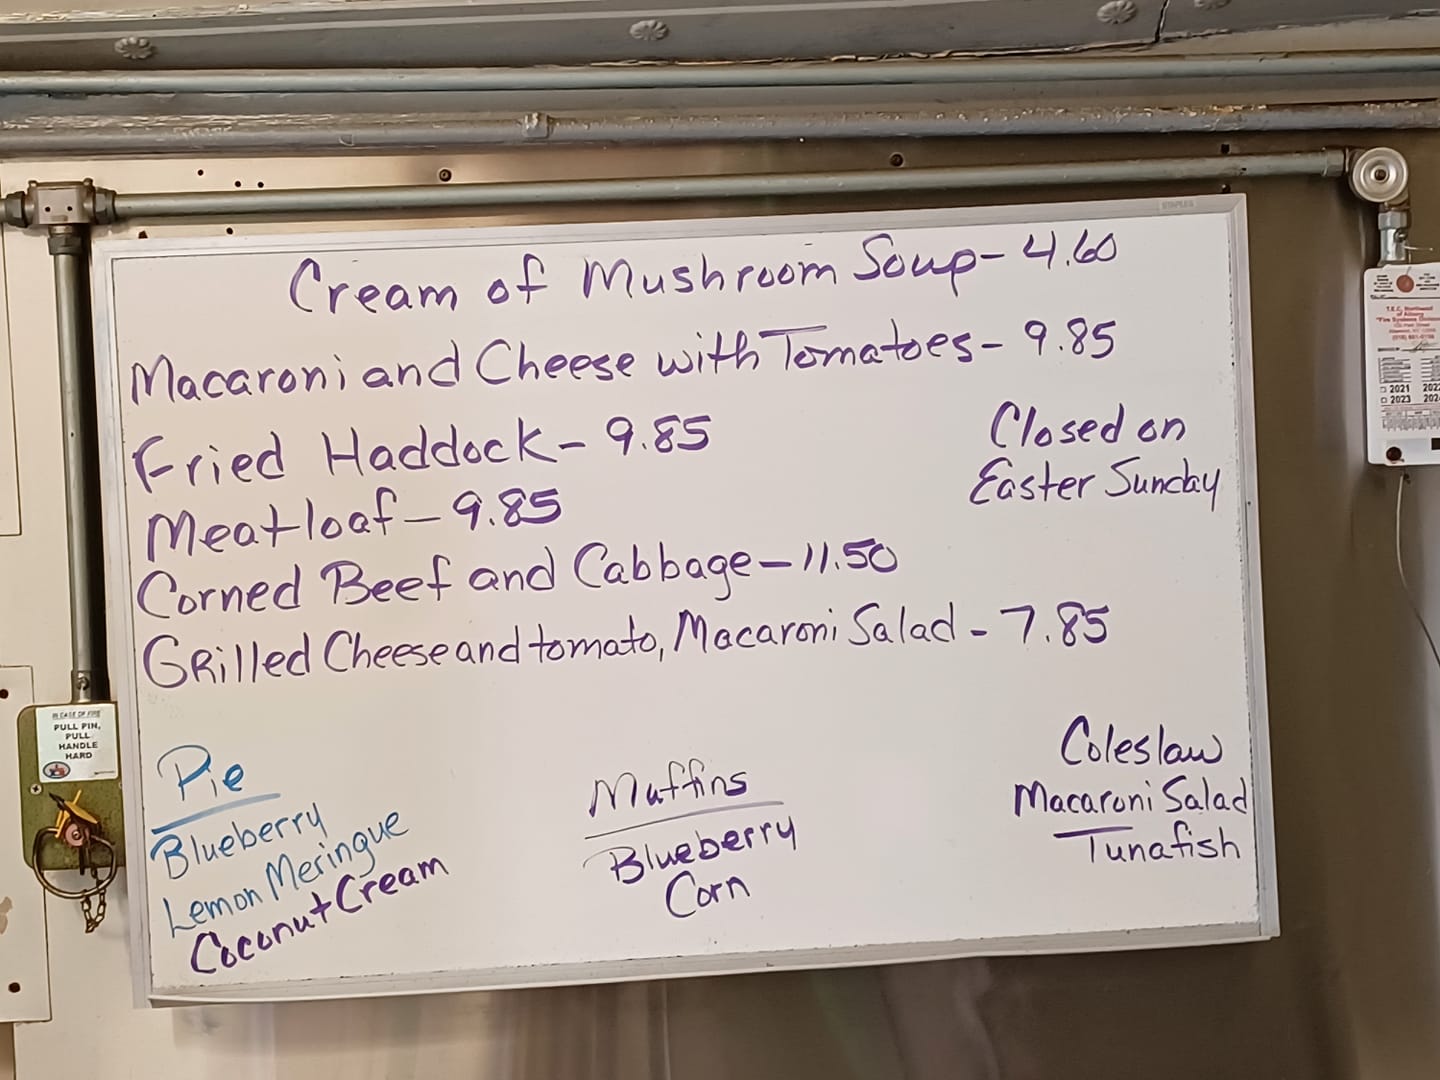 STAPLES
Cream of Mushroom Soup - 4.60
Macaroni and Cheese with Tomatoes - 9.85
Fried Haddock - 9.85
Meatloaf - 9.85
Corned Beef and Cabbage - 11.50
GRilled Cheese and tomato, Macaroni Salad - 7.85
Closed on
Easter Sunday
Pie
Blueberry
Lemon Meringue
Coconut Cream
Muffins
Blueberry
Corn
Coleslaw
Macaroni Salad
Tunafish
IN CASE OF FIRE
PULL PIN,
PULL
HANDLE
HARD
of Albany
2021 2022
2023